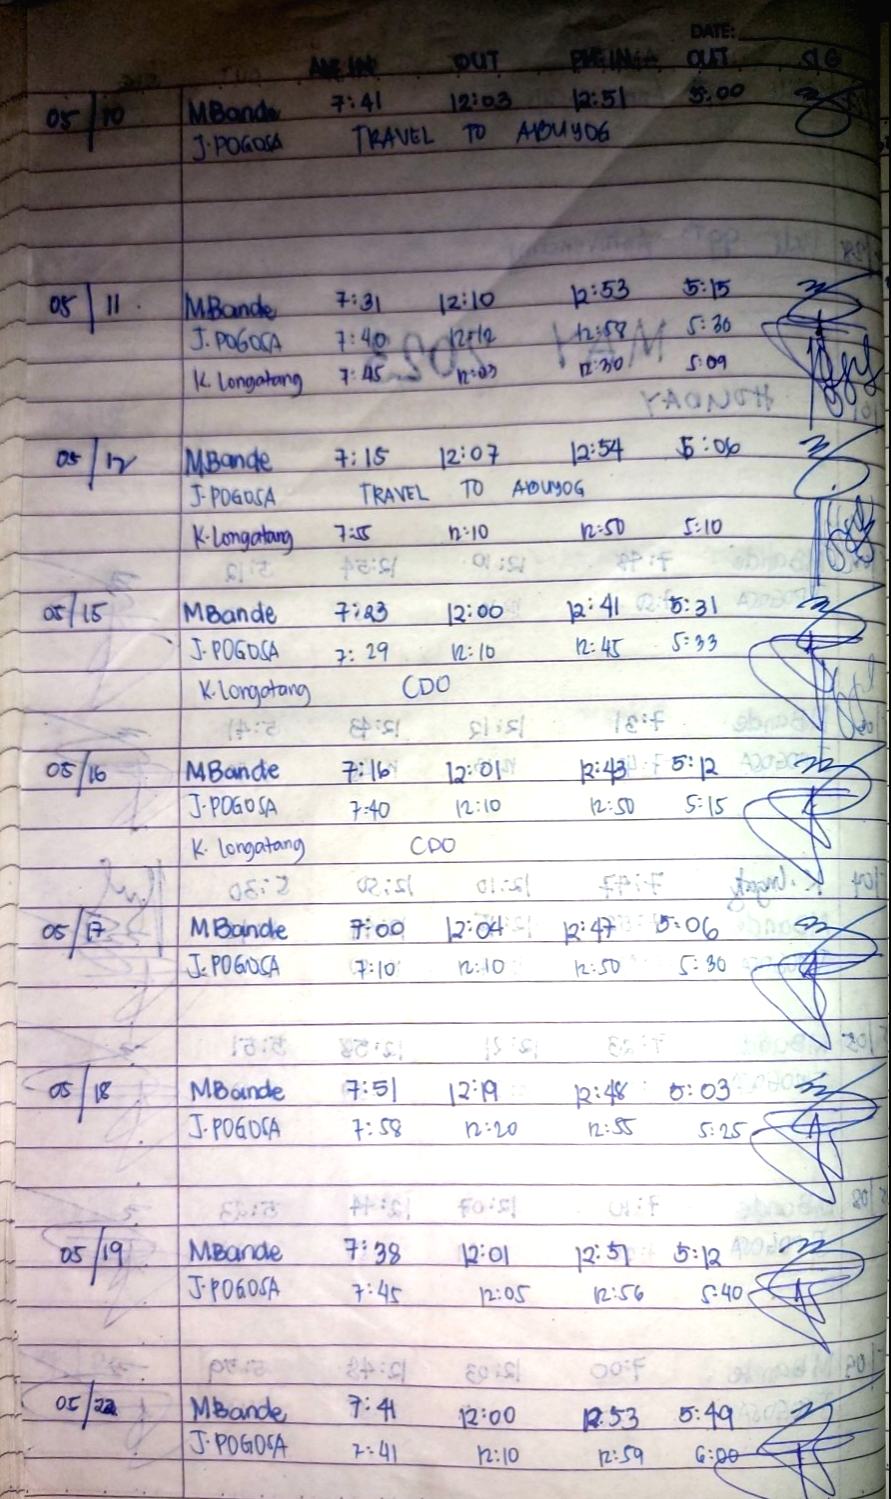 DATE:
AM IN OUT PM IN OUT SIG
05/10 MBande 7:41 12:03 12:51 5:00
J. POGOSA TRAVEL TO ABUYOG
05/11. MBande 7:31 12:10 12:53 5:15
J. POGOSA 7:40 12:12 12:58 5:30
K. Longatang 7:45 12:03 12:30 5:09
05/12 MBande 7:15 12:07 12:54 5:06
J. POGOSA TRAVEL TO ABUYOG
K. Longatang 7:55 12:10 12:50 5:10
05/15 MBande 7:23 12:00 12:41 5:31
J. POGOSA 7:29 12:10 12:45 5:33
K. Longatang CDO
05/16 MBande 7:16 12:01 12:43 5:12
J. POGOSA 7:40 12:10 12:50 5:15
K. Longatang CDO
05/17 MBande 7:00 12:04 12:47 5:06
J. POGOSA 7:10 12:10 12:50 5:30
05/18 MBande 7:51 12:19 12:48 5:03
J. POGOSA 7:58 12:20 12:55 5:25
05/19 MBande 7:38 12:01 12:51 5:12
J. POGOSA 7:45 12:05 12:56 5:40
05/22 MBande 7:41 12:00 12:53 5:49
J. POGOSA 7:41 12:10 12:59 6:00